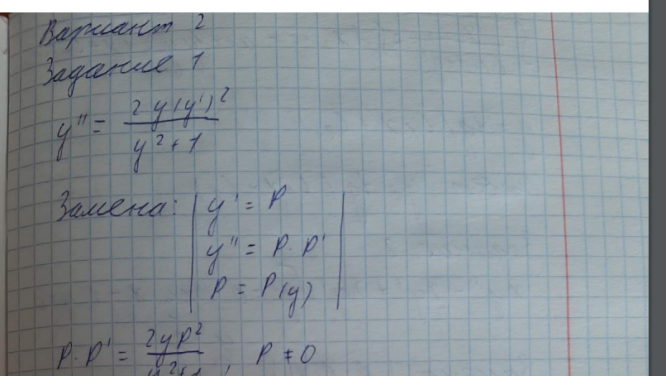 Вариант 2
Задание 1
y'' = 2y(y')² / y² + 1
Замена: | y' = P
y'' = P · P'
P = P(y) |
P · P' = 2yP² / y² + 1, P ≠ 0